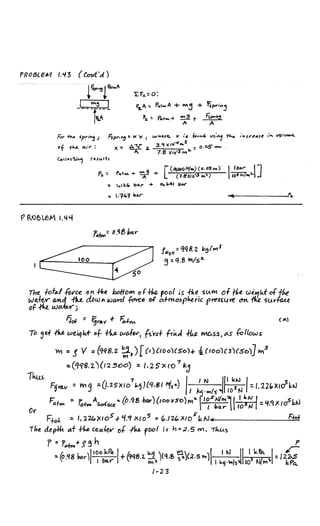 PROBLEM 1.43 (Cont'd)
Fspring PatmA
mg
P2A
ΣFx = 0:
P2A = PatmA + mg + Fspring
P2 = Patm + mg/A + Fspring/A
For the spring, Fspring = k x, where x is found using the increase in volume
of the air: x = ΔV/A = 3.9 x 10⁻⁴ m³ / 7.8 x 10⁻³ m² = 0.05 m.
Collecting results
P2 = Patm + mg/A + [ (9,000 N/m)(0.05 m) / (7.8 x 10⁻³ m²) ] | 1 bar / 10⁵ N/m² |
= 1.126 bar + 0.641 bar
= 1.767 bar P2
PROBLEM 1.44
Patm = 0.98 bar
ρH2O = 998.2 kg/m³
g = 9.8 m/s²
1 100 4 50
The total force on the bottom of the pool is the sum of the weight of the
water and the downward force of atmospheric pressure on the surface
of the water;
Ftot = Fgrav + Fatm (*)
To get the weight of the water, first find the mass, as follows
m = ρ V = (998.2 kg/m³) [ (1)(100)(50) + ½ (100)(3)(50) ] m³
= (998.2)(12500) = 1.25 x 10⁷ kg
Thus
Fgrav = mg = (1.25 x 10⁷ kg)(9.81 m/s²) | 1 N / 1 kg·m/s² | | 1 kN / 10³ N | = 1.226 x 10⁵ kN
Fatm = Patm Asurface = (0.98 bar)(100 x 50) m² | 10⁵ N/m² / 1 bar | | 1 kN / 10³ N | = 4.9 x 10⁵ kN
Or
Ftot = 1.226 x 10⁵ + 4.9 x 10⁵ = 6.126 x 10⁵ kN Ftot
The depth at the center of the pool is h = 2.5 m. Thus
P = Patm + ρ g h P
= (0.98 bar) | 100 kPa / 1 bar | + (998.2 kg/m³)(9.8 m/s²)(2.5 m) | 1 N / 1 kg·m/s² | | 1 kPa / 10³ N/m² | = 122.5 kPa
1-23